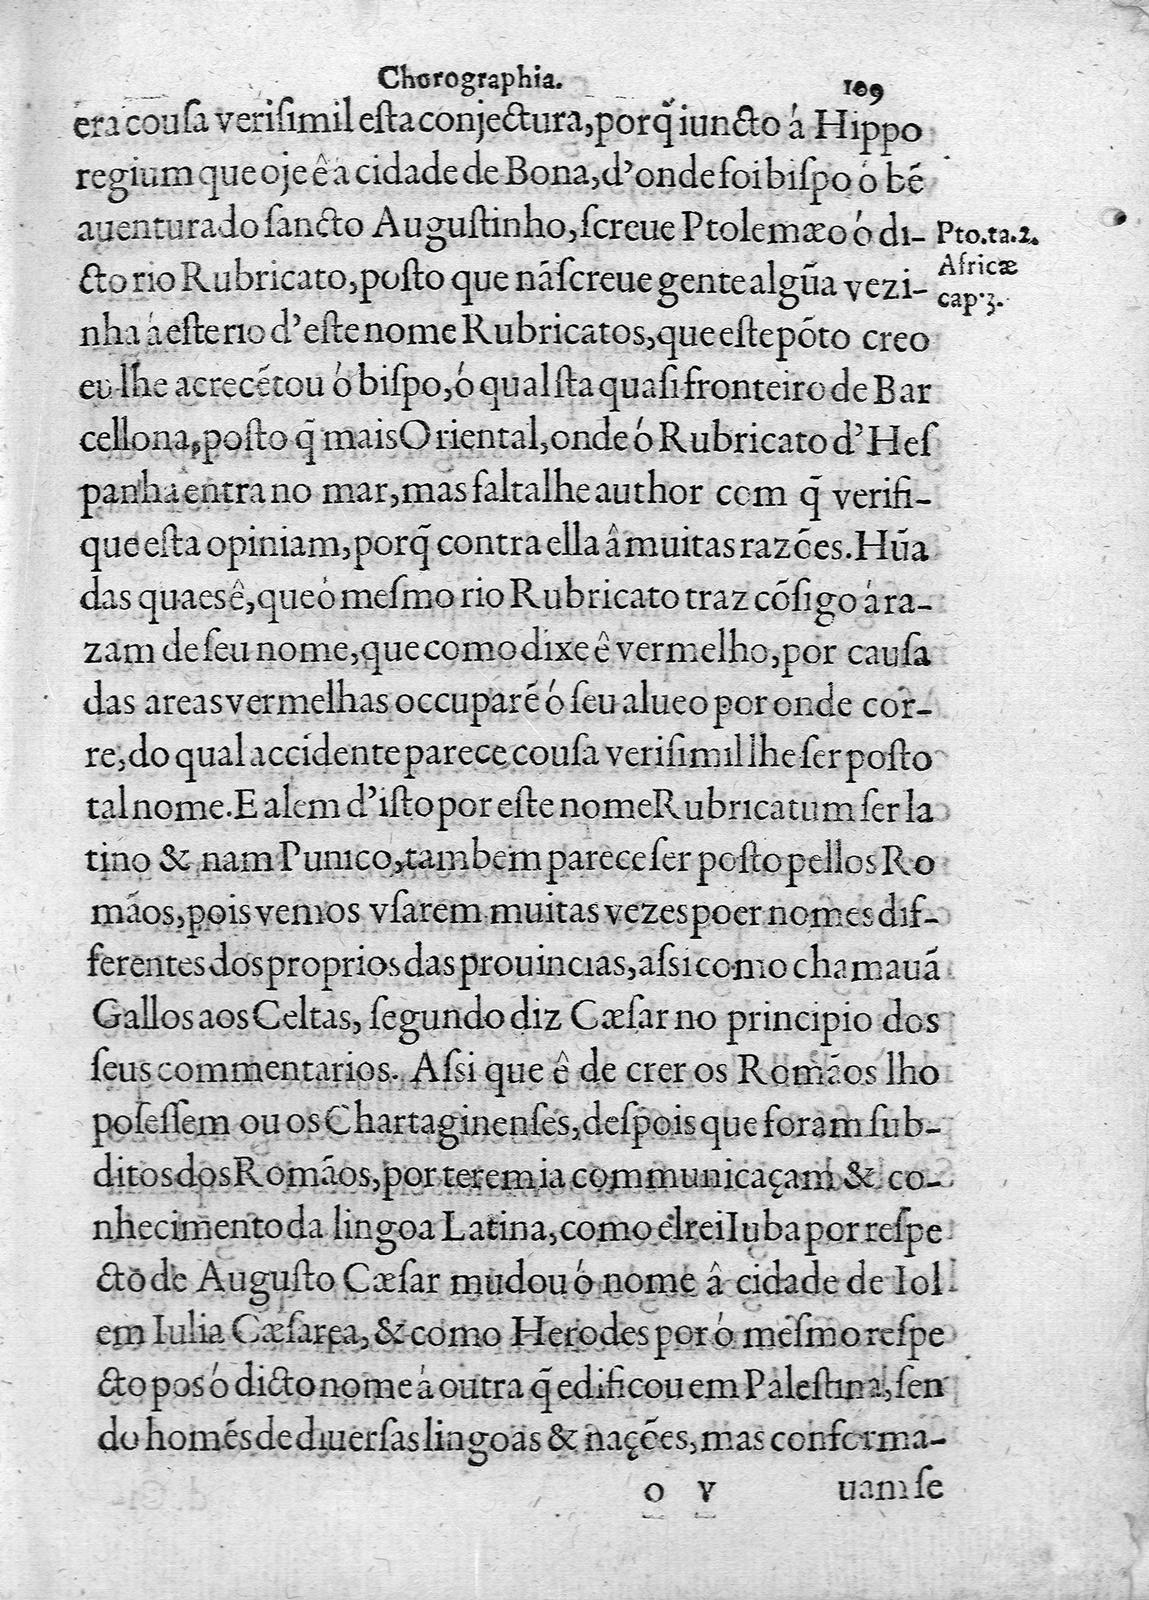 Chorographia. 109
era cousa veriſimil eſta conjectura, porq̃ iuncto á Hippo
regium que oje ê a cidade de Bona, d'onde foi biſpo ó bẽ
auenturado ſancto Auguſtinho, ſcreue Ptolemæo ó di-
cto rio Rubricato, poſto que nã ſcreue gente algũa vezi-
nha á eſte rio d'eſte nome Rubricatos, que eſte põto creo
eu lhe acrecẽtou ó biſpo, ó qual ſta quaſi fronteiro de Bar
cellona, poſto q̃ mais Oriental, onde ó Rubricato d'Heſ
panha entra no mar, mas falta lhe author com q̃ verifi-
que eſta opiniam, porq̃ contra ella â muitas razões. Hũa
das quaes ê, que ó meſmo rio Rubricato traz cõſigo á ra-
zam de ſeu nome, que como dixe ê vermelho, por cauſa
das areas vermelhas occuparẽ ó ſeu alueo por onde cor-
re, do qual accidente parece couſa veriſimil lhe ſer poſto
tal nome. E alem d'iſto por eſte nome Rubricatum ſer la
tino & nam Punico, tambem parece ſer poſto pellos Ro
mãos, pois vemos vſarem muitas vezes poer nomes dif-
ferentes dos proprios das prouincias, aſsi como chamauã
Gallos aos Celtas, ſegundo diz Cæſar no principio dos
ſeus commentarios. Aſsi que ê de crer os Romãos lho
poſeſſem ou os Chartaginenſes, deſpois que foram ſub-
ditos dos Romãos, por terem ia communicaçam & co-
nhecimento da lingoa Latina, como elrei Iuba por reſpe
cto de Auguſto Cæſar mudou ó nome â cidade de Iol
em Iulia Cæſarea, & como Herodes por ó meſmo reſpe
cto pos ó dicto nome á outra q̃ edificou em Paleſtina, ſen
do homẽs de diuerſas lingoas & nações, mas conforma-
o v uam ſe
Pto.ta.2.
Africæ
cap.3.